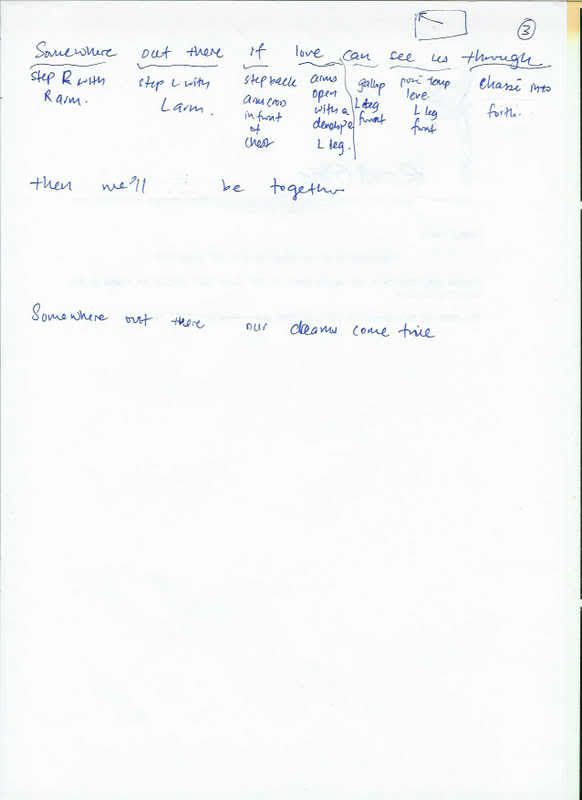 3
Somewhere out there if love can see us through
step R with R arm.
step L with L arm.
step back
arm cross
in front
of
chest
arms
open
with a
develope
L leg.
gallop
L leg
front
posé temp
leve
L leg
front
chassé into
forth.
then we'll be together
Somewhere out there our dreams come true